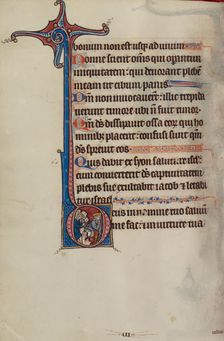 bonum non est usq; ad unum.
Nonne scient oms qui opantur
iniquitatem: qui deuorant plebem
meam ut cibum panis.
Dm non inuocauerunt: illic trepida
uerunt timore ubi non fuit timor.
Qm ds dissipauit ossa eor qui ho
minibz placent: confusi sunt qm
ds spreuit eos.
Quis dabit ex syon salutare isrl:
cum conuerterit ds captiuitatem
plebis sue exultabit iacob & letabi
tur israel.
Deus in nomine tuo saluum
me fac: & in uirtute tua